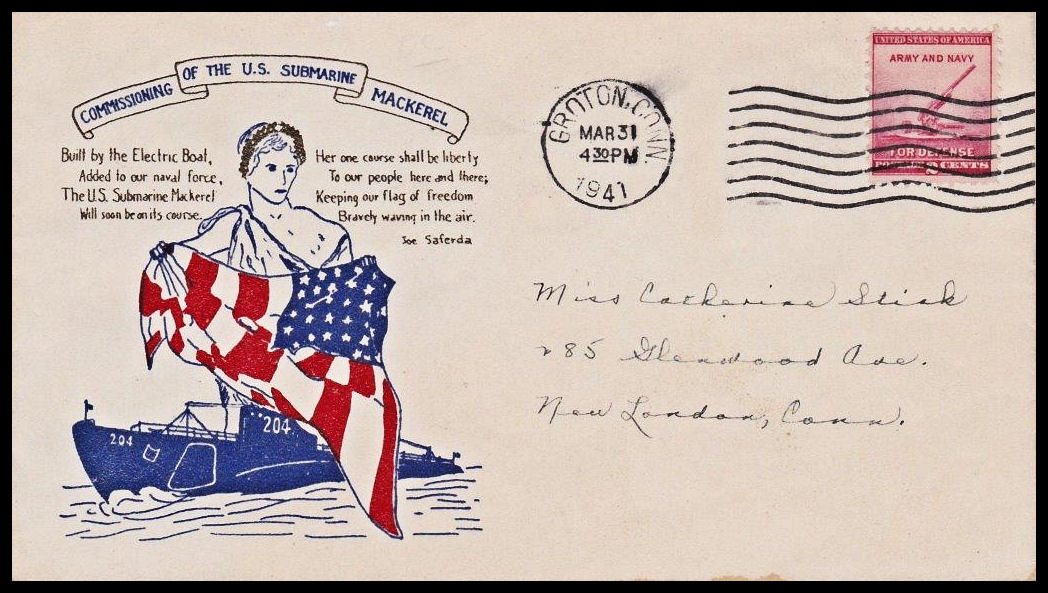 COMMISSIONING OF THE U.S. SUBMARINE MACKEREL
Built by the Electric Boat,
Added to our naval force,
The U.S. Submarine Mackerel
Will soon be on its course.
Her one course shall be liberty
To our people here and there;
Keeping our flag of freedom
Bravely waving in the air.
Joe Saferda
204
204
GROTON, CONN
MAR 31
4 30 PM
1941
UNITED STATES OF AMERICA
ARMY AND NAVY
FOR DEFENSE
2 CENTS
Miss Catherine Stink
285 Glenwood Ave.
New London, Conn.